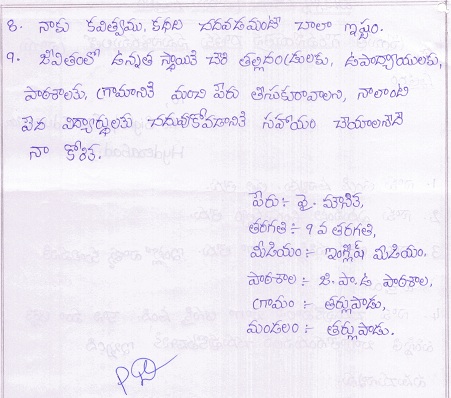 8. నాకు కవిత్వము, కథలు చదవడమంటే చాలా ఇష్టం.
9. జీవితంలో ఉన్నత స్థాయికి చేరి తల్లిదండ్రులకు, ఉపాధ్యాయులకు,
పాఠశాలకు, గ్రామానికి మంచి పేరు తీసుకురావాలని, నాలాంటి
పేద విద్యార్థులకు చదువుకోవడానికి సహాయం చేయాలనేదే
నా కోరిక.
పేరు :- వై. మౌనిక,
తరగతి :- 9 వ తరగతి,
మీడియం :- ఇంగ్లీష్ మీడియం.
పాఠశాల :- జి.ప.ఉ పాఠశాల,
గ్రామం :- తర్లుపాడు,
మండలం :- తర్లుపాడు.